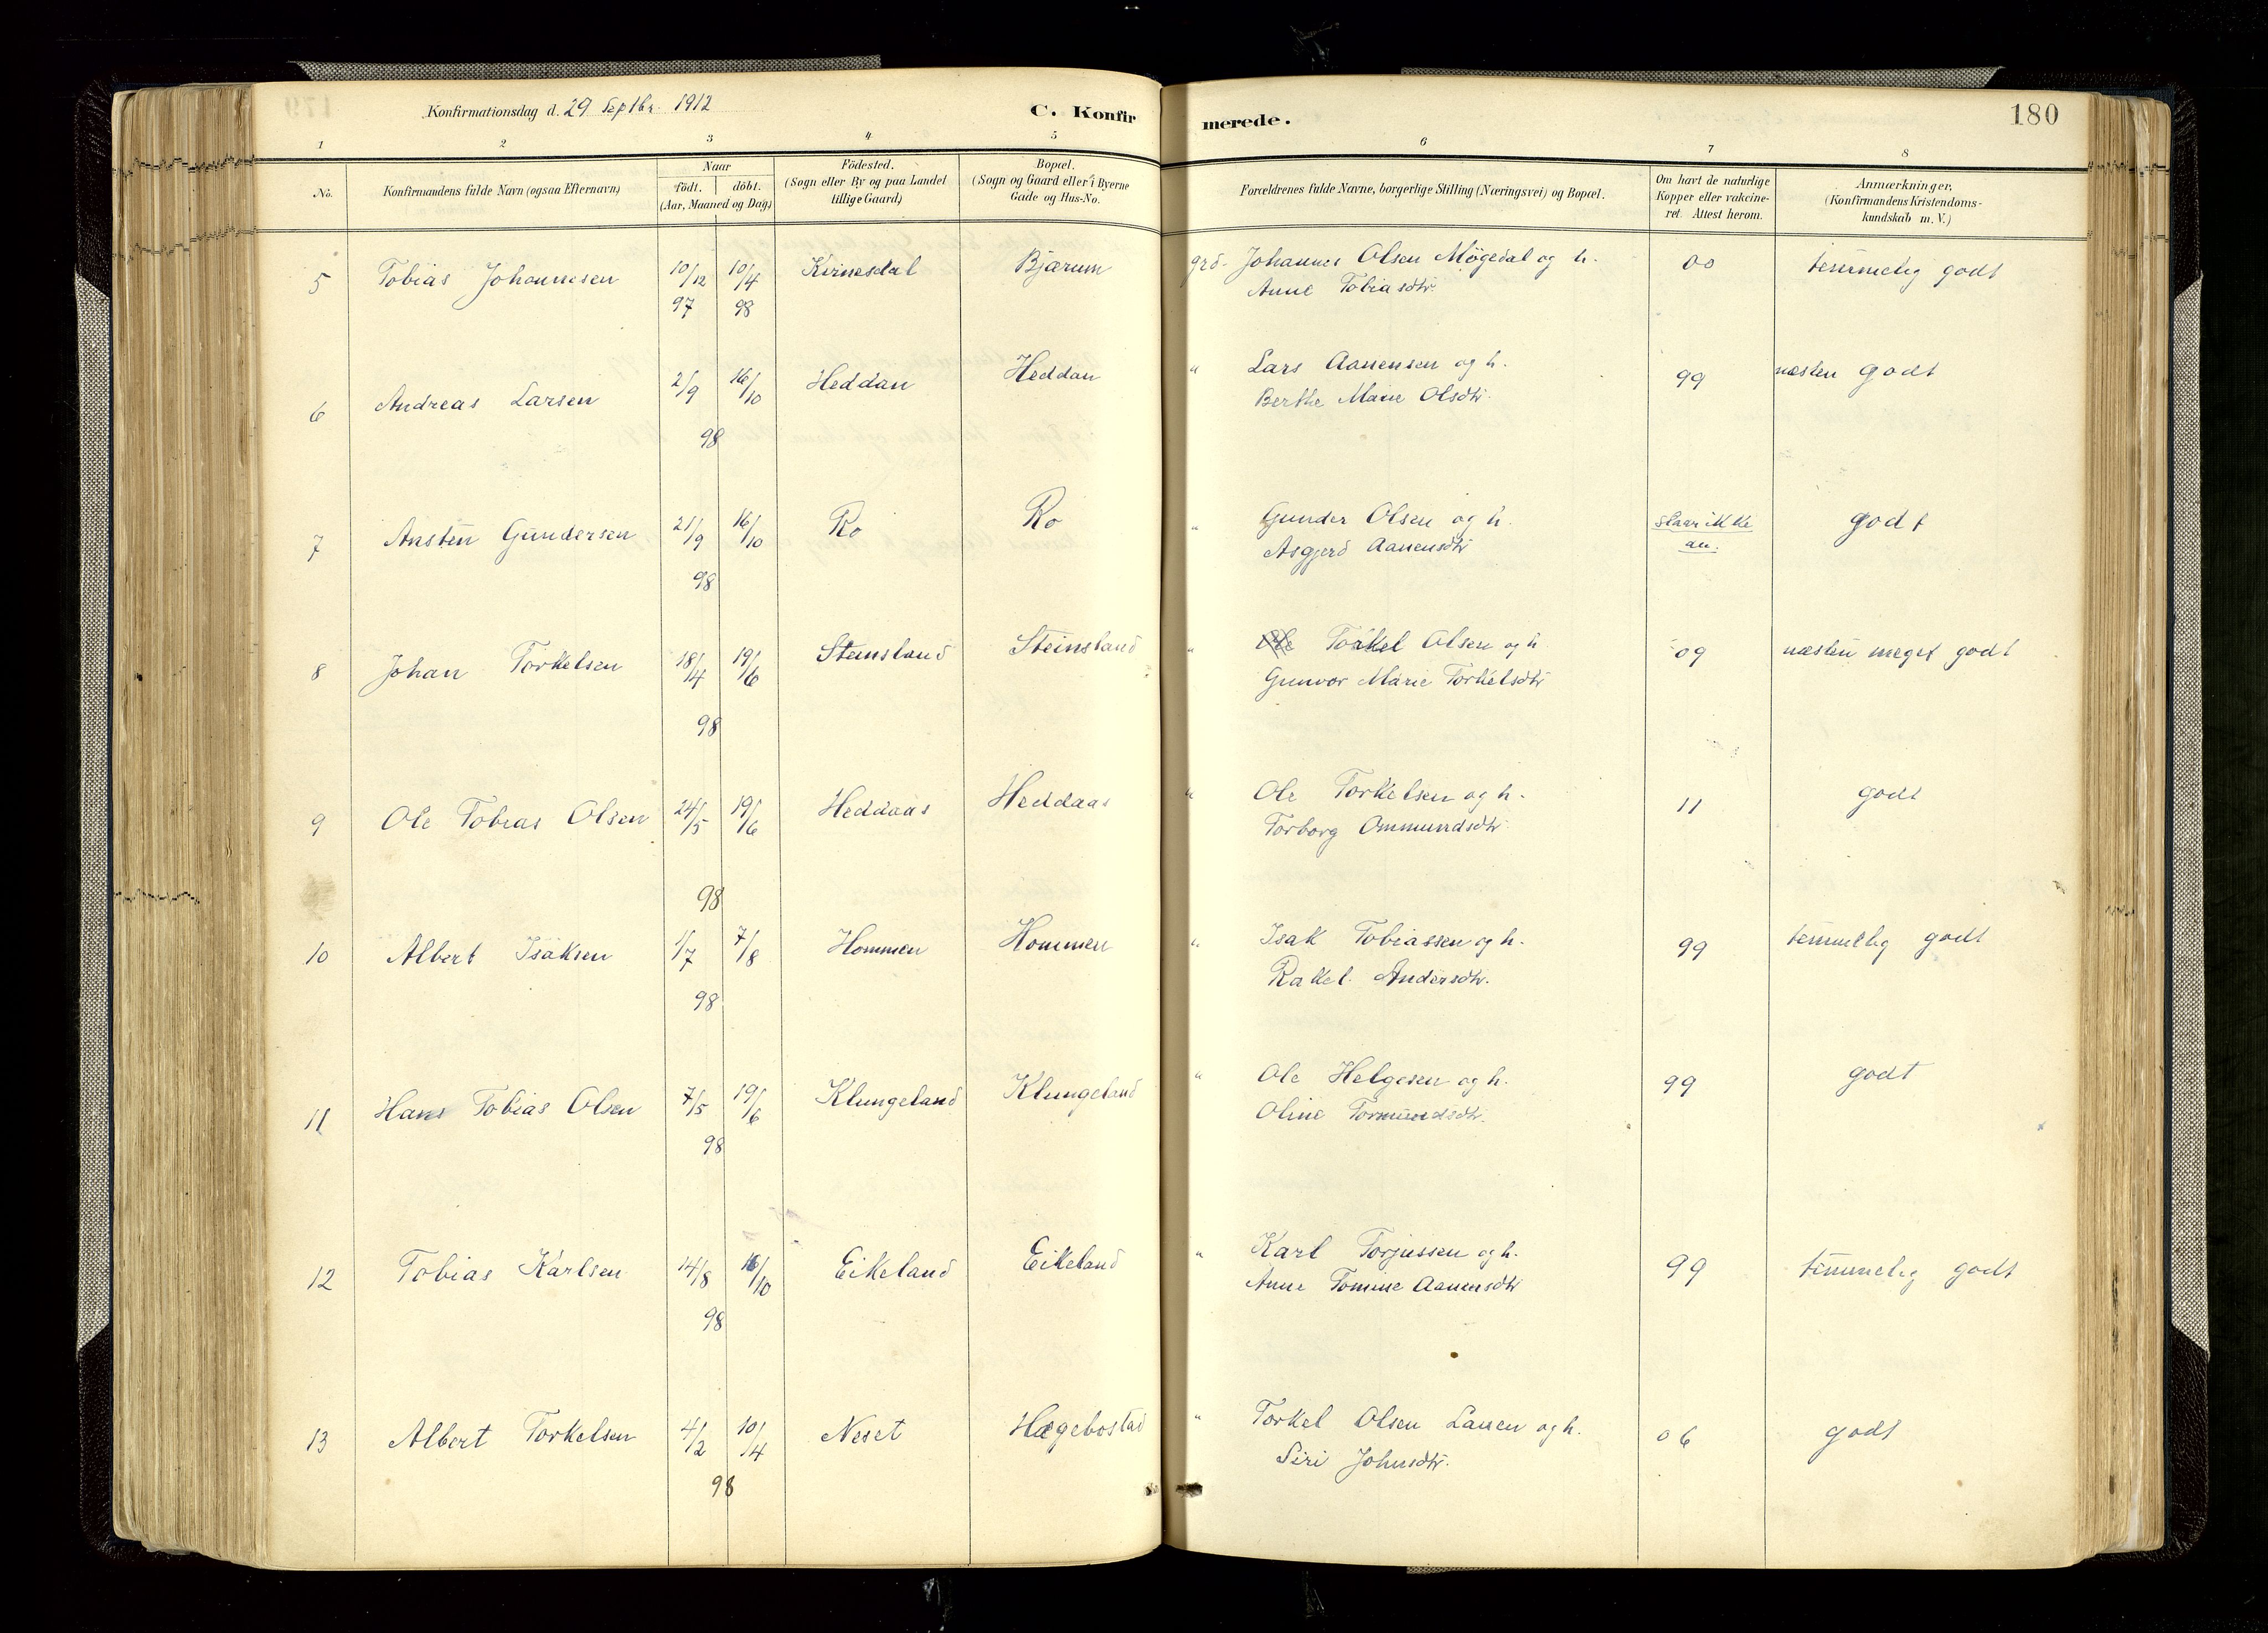 Konfirmationsdag d. 29 Septbr. 1912
C. Konfirmerede.
180
1 2 3 4 5 6 7 8
No.
Konfirmandens fulde Navn (ogsaa Efternavn)
Naar
födt. döbt.
(Aar, Maaned og Dag)
Födested.
(Sogn eller By og paa Landet
tillige Gaard)
Bopæl.
(Sogn og Gaard eller i Byerne
Gade og Hus-No.
Forældrenes fulde Navne, borgerlige Stilling (Næringsvei) og Bopæl.
Om havt de naturlige
Kopper eller vakcine-
ret. Attest herom.
Anmærkninger.
(Konfirmandens Kristendoms-
kundskab m. V.)
5 Tobias Johannesen 10/12 97 10/4 98 Kvinesdal Bjærum grd. Johannes Olsen Møgedal og h. 00 temmelig godt
Anne Tobiasdtr.
6 Andreas Larsen 2/9 16/10 98 Heddan Heddan " Lars Aanensen og h. 99 næsten godt
Berthe Marie Olsdtr.
7 Ansten Gundersen 21/9 16/10 98 Ro Ro " Gunder Olsen og h. slaar ikke an. godt
Asgjerd Aanensdtr
8 Johan Torkelsen 18/4 19/6 98 Steinsland Steinsland " Ole Torkel Olsen og h 09 næsten meget godt
Gunvor Marie Torkelsdtr
9 Ole Tobias Olsen 24/5 19/6 98 Heddaas Heddaas " Ole Torkelsen og h. 11 godt
Torborg Ommundsdtr.
10 Albert Isaksen 1/7 7/8 98 Hommen Hommen " Isak Tobiassen og h. 99 temmelig godt
Rakel Andersdtr.
11 Hans Tobias Olsen 7/5 19/6 98 Klungeland Klungeland " Ole Helgesen og h. 99 godt
Oline Tormundsdtr.
12 Tobias Karlsen 14/8 16/10 98 Eikeland Eikeland " Karl Torjussen og h. 99 temmelig godt
Anne Tomine Aanensdtr
13 Albert Torkelsen 4/2 10/4 98 Neset Hægebostad " Torkel Olsen Lauen og h. 06 godt
Siri Johnsdtr.